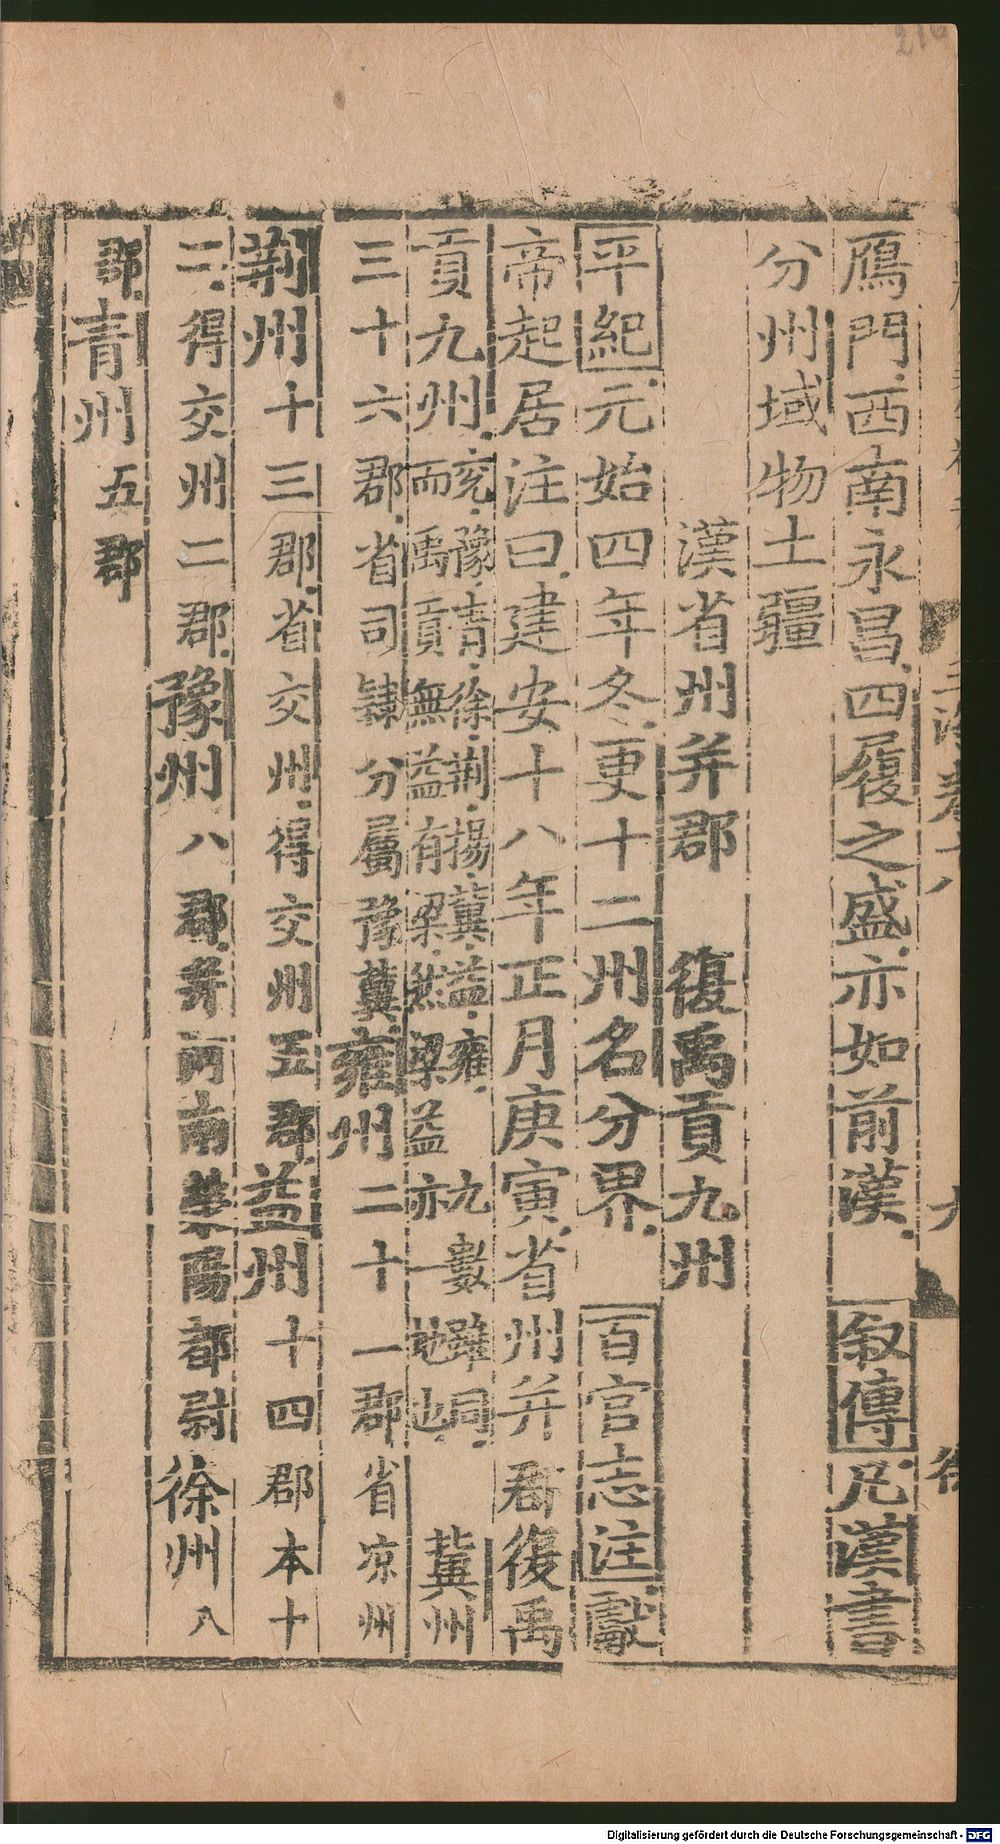 鴈門西南永昌四履之盛亦如前漢 叙傳凡漢書
分州域物土疆
漢省州并郡 復禹貢九州
平紀元始四年冬更十二州名分界 百官志注獻
帝起居注曰建安十八年正月庚寅省州并郡復禹
貢九州兖豫青徐荆揚冀益雍九數雖同而禹貢無益有梁然梁益亦一地也 冀州
三十六郡省司隸分屬豫冀雍州二十一郡省凉州
荆州十三郡省交州得交州五郡益州十四郡本十
二得交州二郡豫州八郡并河南滎陽都尉徐州八
郡青州五郡
Digitalisierung gefördert durch die Deutsche Forschungsgemeinschaft - DFG